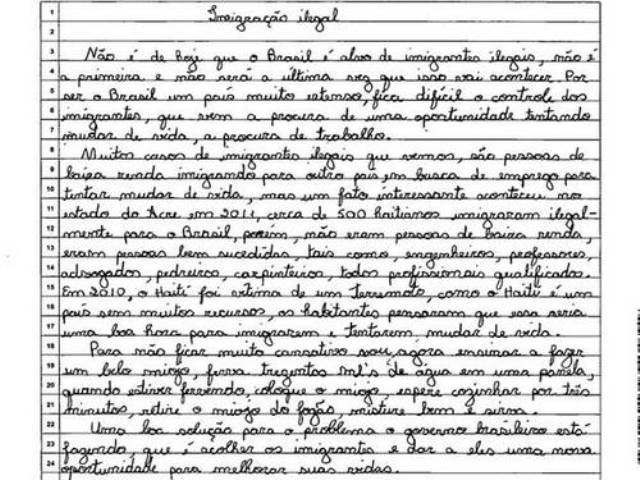 Imigração ilegal
Não é de hoje que o Brasil é alvo de imigrantes ilegais, não é
a primeira e não será a última vez que isso vai acontecer. Por
ser o Brasil um país muito extenso, fica difícil o controle dos
imigrantes, que vem a procura de uma oportunidade tentando
mudar de vida, a procura de trabalho.
Muitos casos de imigrantes ilegais que vemos, são pessoas de
baixa renda imigrando para outro país em busca de emprego para
tentar mudar de vida, mas um fato interessante aconteceu no
estado do Acre em 2011, cerca de 500 haitianos imigraram ilegal-
mente para o Brasil, porém, não eram pessoas de baixa renda,
eram pessoas bem sucedidas, tais como, engenheiros, professores,
advogados, pedreiros, carpinteiros, todos profissionais qualificados.
Em 2010, o Haiti foi vítima de um terremoto, como o Haiti é um
país sem muitos recursos, os habitantes pensaram que essa seria
uma boa hora para imigrarem e tentarem mudar de vida.
Para não ficar muito cansativo vou agora ensinar a fazer
um belo miojo, ferva trezentos ml's de água em uma panela,
quando estiver fervendo, coloque o miojo, espere cozinhar por três
minutos, retire o miojo do fogão, misture bem e sirva.
Uma boa solução para o problema o governo brasileiro está
fazendo, que é acolher os imigrantes e dar a eles uma nova
oportunidade para melhorar suas vidas.